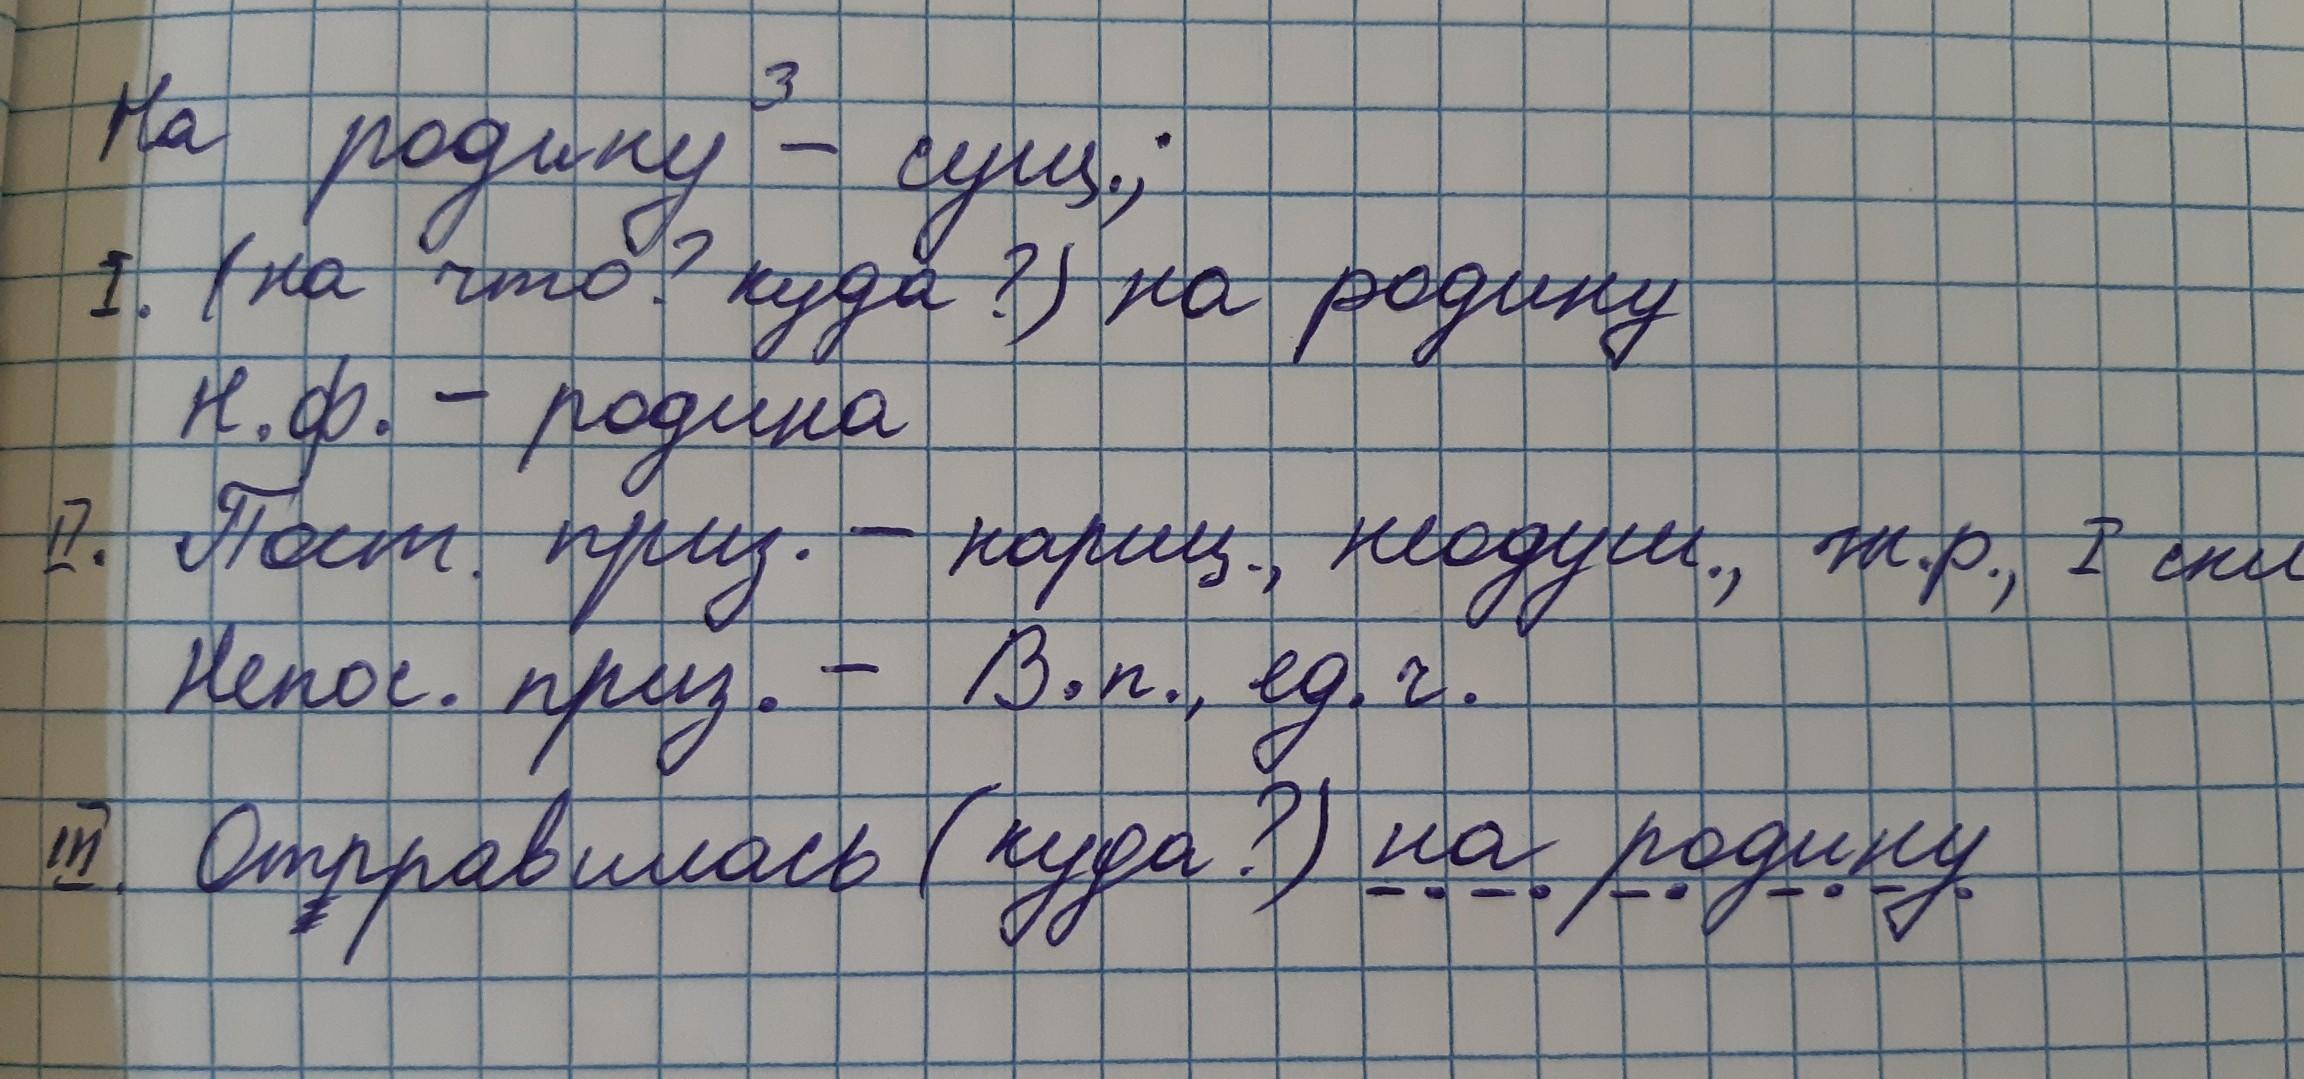 На родину³ - сущ.;
I. (на что? куда?) на родину
Н.ф. - родина
II. Пост. приз. - нариц., неодуш., ж.р., I скл
Непос. приз. - В.п., ед.ч.
III. Отправилась (куда?) на родину